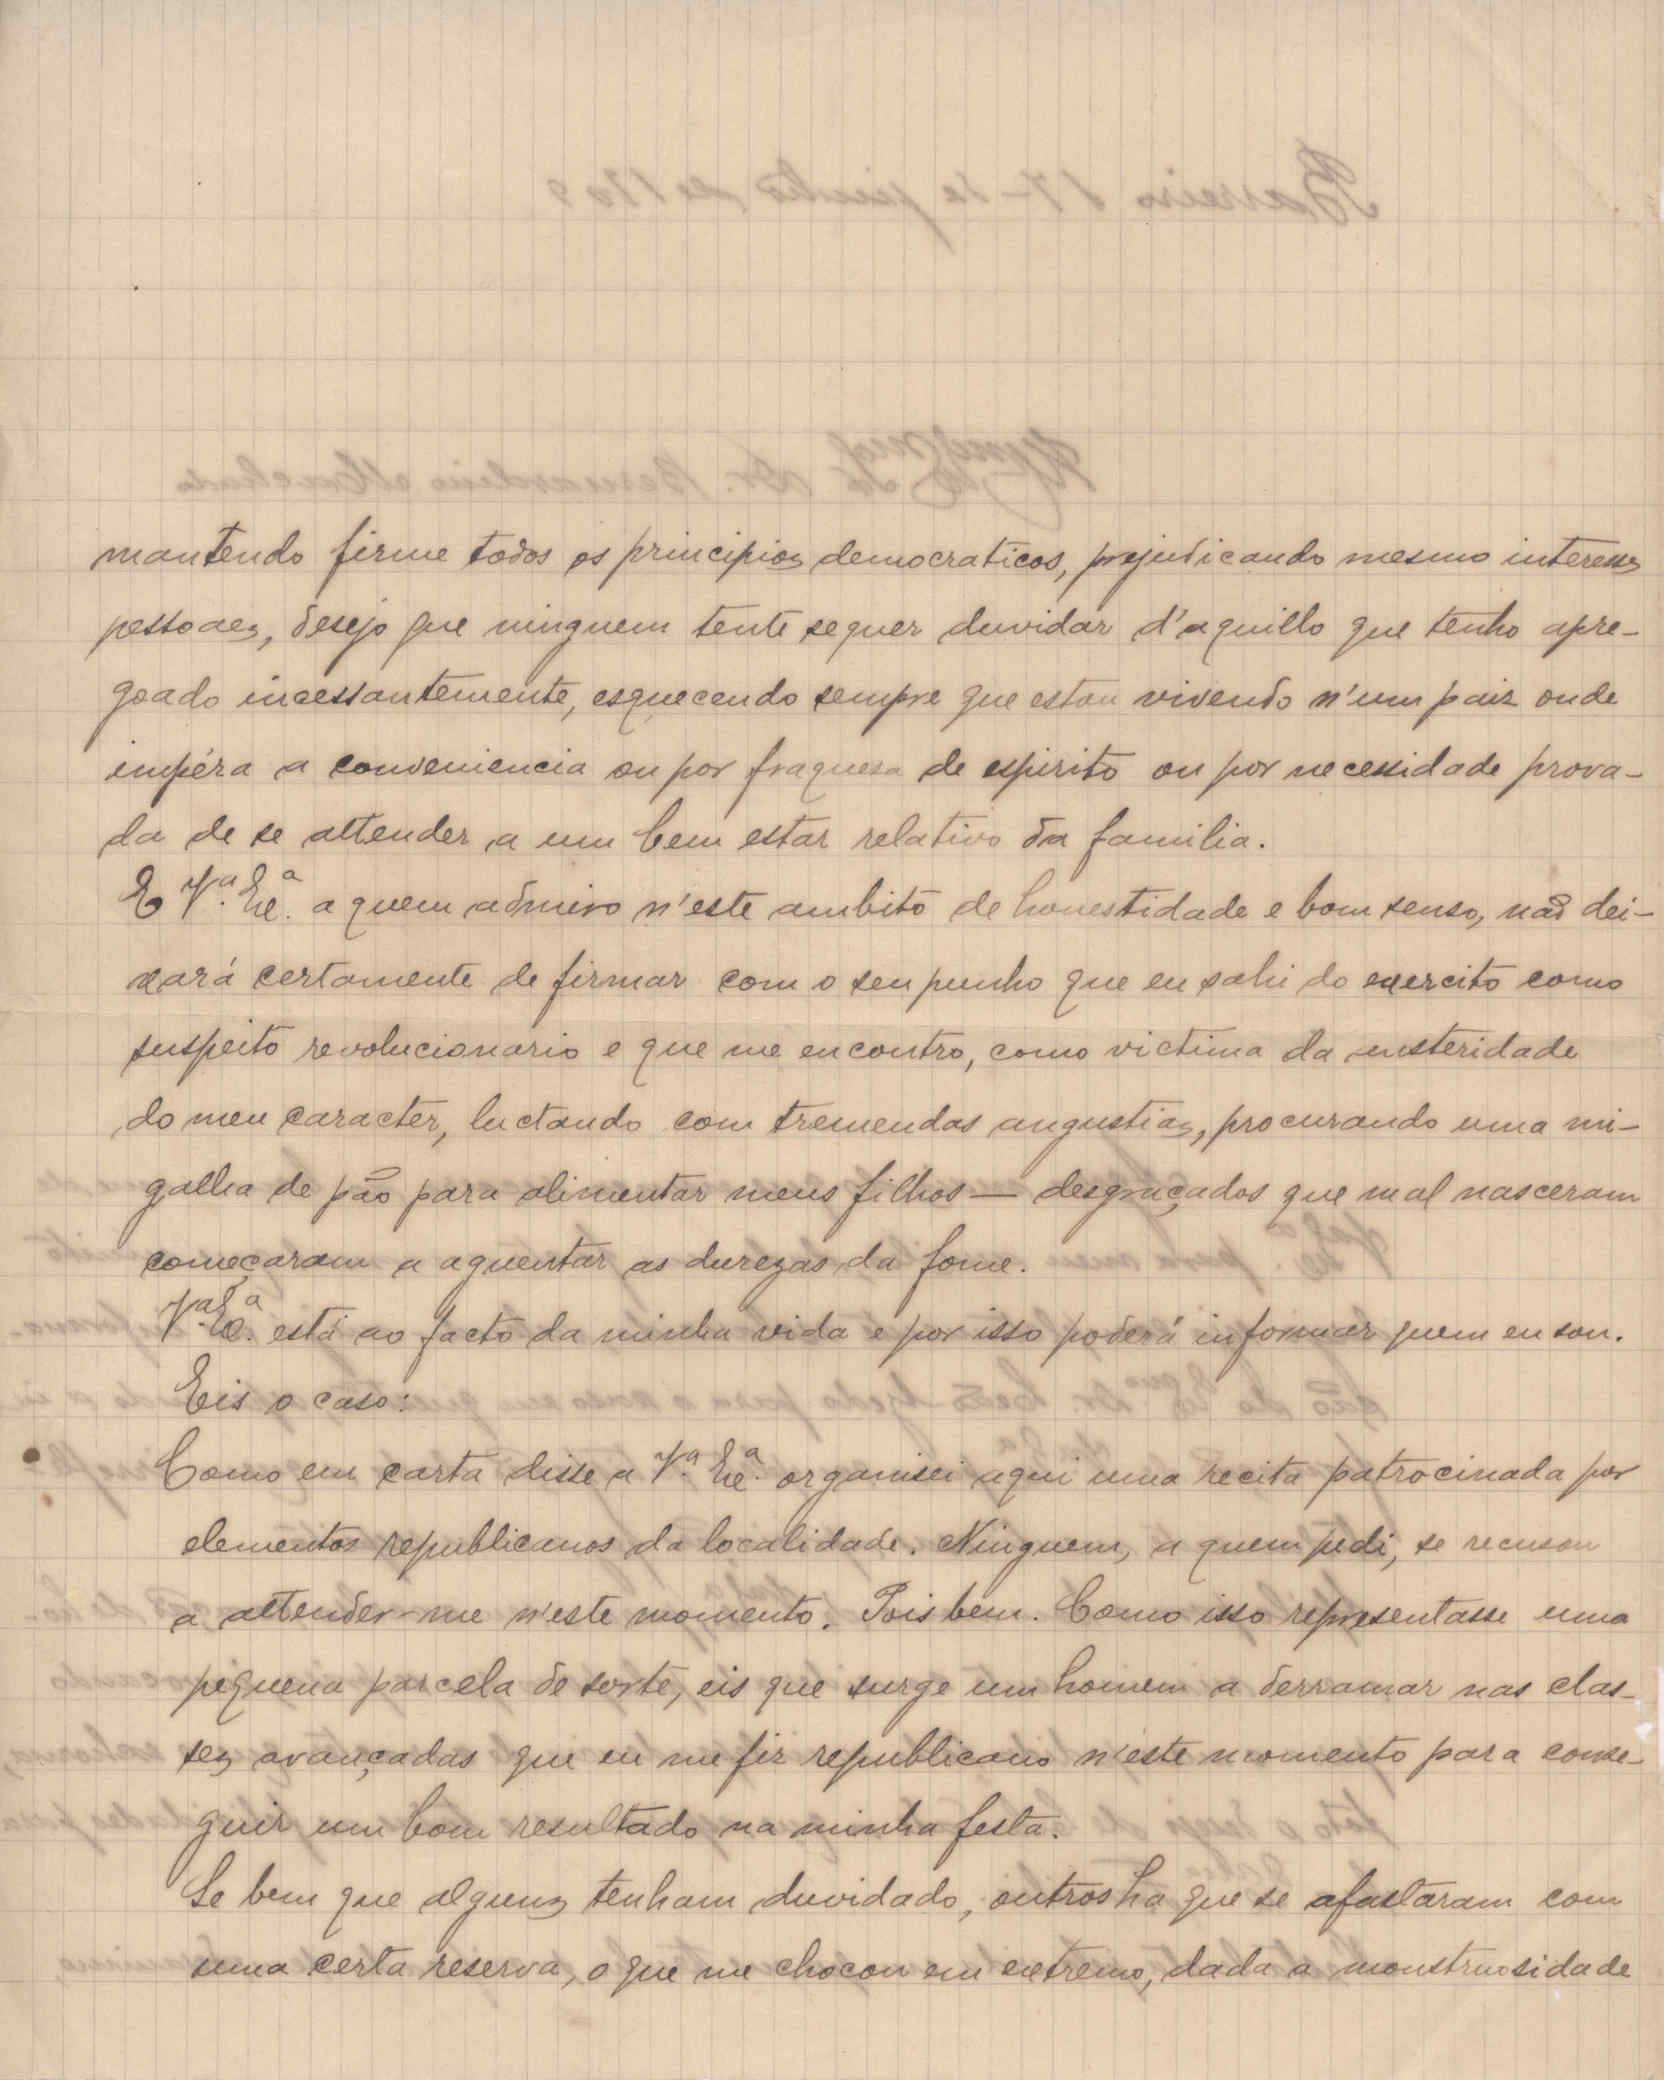 mantendo firme todos os principios democraticos, prejudicando mesmo interesses
pessoaes, desejo que ninguem tente sequer duvidar d'aquillo que tenho apre-
goado incessantemente, esquecendo sempre que estou vivendo n'um paiz onde
impéra a conveniencia ou por fraqueza de espirito ou por necessidade prova-
da de se attender a um bem estar relativo da familia.
E V.ª Ex.ª a quem admiro n'este ambito de honestidade e bom senso, não dei-
xará certamente de firmar com o seu punho que eu sahi do exercito como
suspeito revolucionario e que me encontro, como victima da austeridade
do meu caracter, luctando com tremendas angustias, procurando uma mi-
galha de pão para alimentar meus filhos — desgraçados que mal nasceram
começaram a aguentar as durezas da fome.
V.ª Ex.ª está ao facto da minha vida e por isso poderá informar quem eu sou.
Eis o caso:
Como em carta disse a V.ª Ex.ª organisei aqui uma recita patrocinada por
elementos republicanos da localidade. Ninguem, a quem pedi, se recusou
a attender-me n'este momento. Pois bem. Como isso representasse uma
piquena parcela de sorte, eis que surge um homem a derramar nas clas-
ses avançadas que eu me fiz republicano n'este momento para conse-
guir um bom resultado na minha festa.
Se bem que alguns tenham duvidado, outros ha que se afastaram com
uma certa reserva, o que me chocou em extremo, dada a monstruosidade